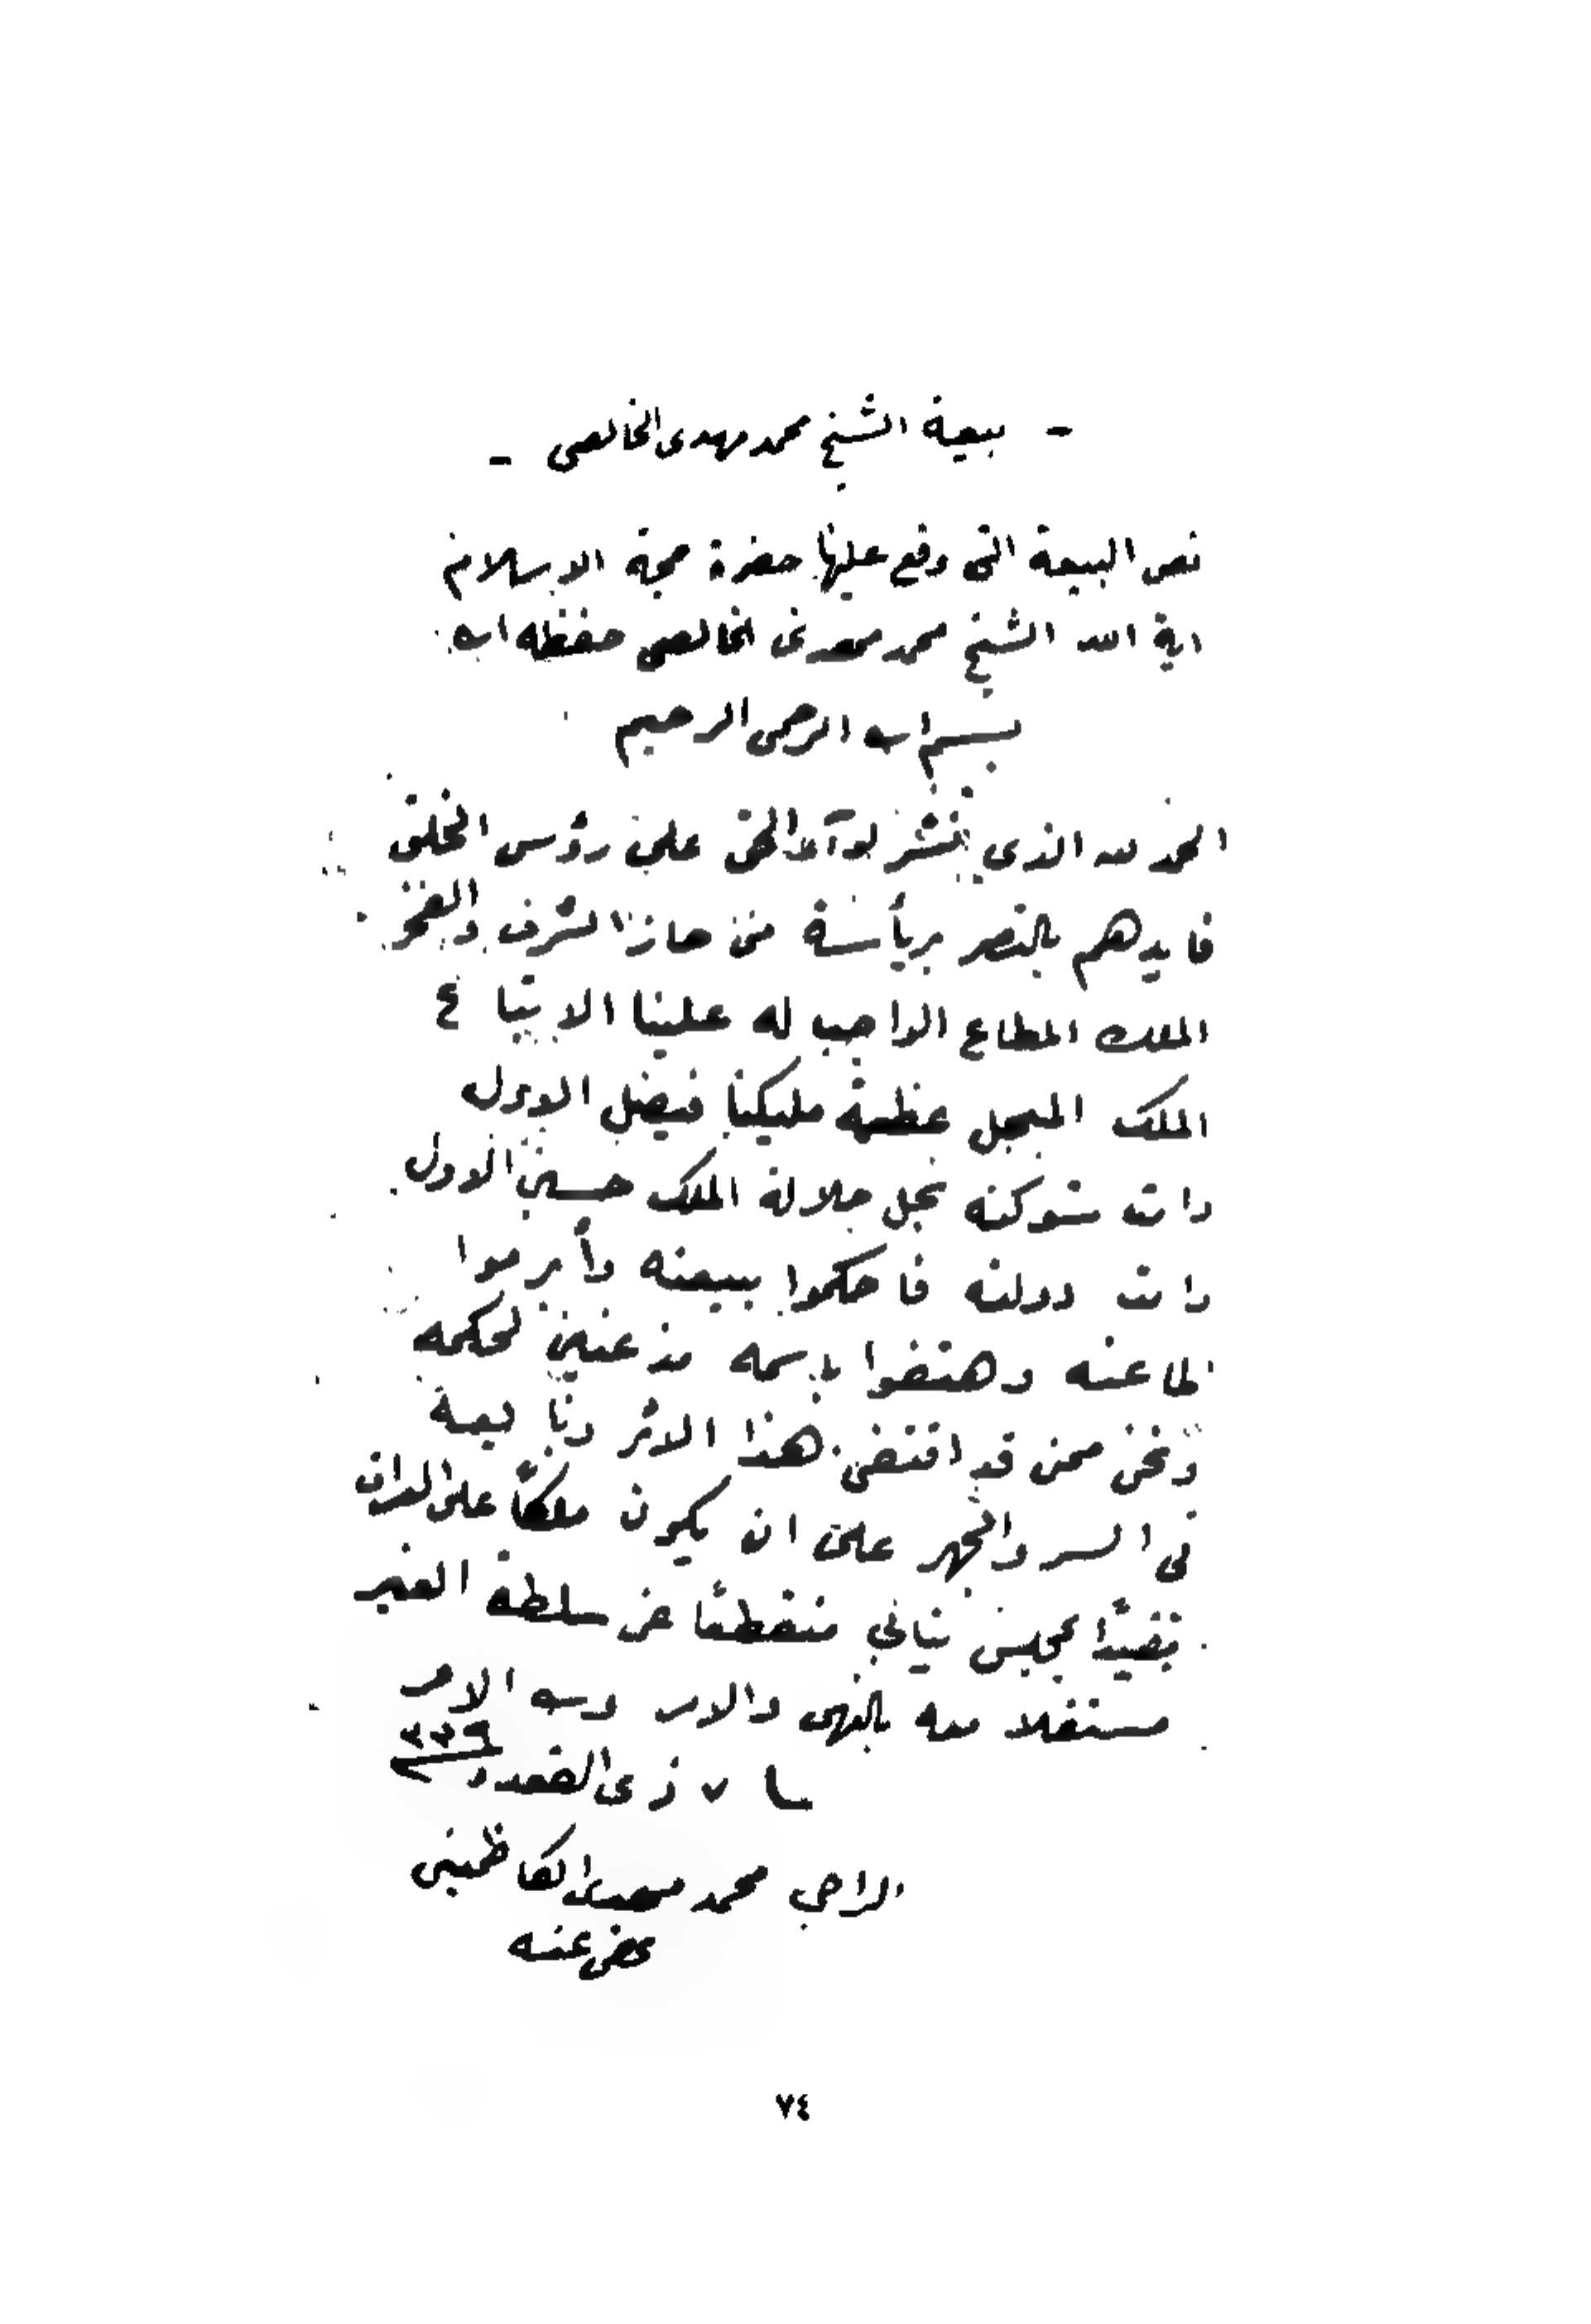 - بيعة الشيخ محمد مهدى الخالصي -
نص البيعة التى وقع عليها حضرة حجة الاسلام
اية الله الشيخ محمد مهدى الخالصي حفظه الله
بسم الله الرحمن الرحيم
الحمد لله الذى نشر لوآء الحق على رؤس الخلق
فايدهم بالنصر برأسة من حاز الشرف والفخر
الملك المطاع الواجب له علينا الاتباع
الملك المبجل عظمة مليكنا فيصل الاول
دامت شوكته نجل جلالة الملك حسين الاول
دامت دولته فاحكموا بيعته وأبرموا
طاعته وهتفوا باسمه مذعنين لحكمه
ونحن ممن قد اقتفى هذا الاثر وبايعه
في السر والجهر على ان يكون ملكاً على العراق
مقيداً بمجلس نيابي منقطعاً عن سلطة الغير
مستقلا معه بالنهى والامر ولله الامر
٧ ذى القعدة ٣٣٩
الراجي محمد مهدى الكاظمينى
عفى عنه
٧٤